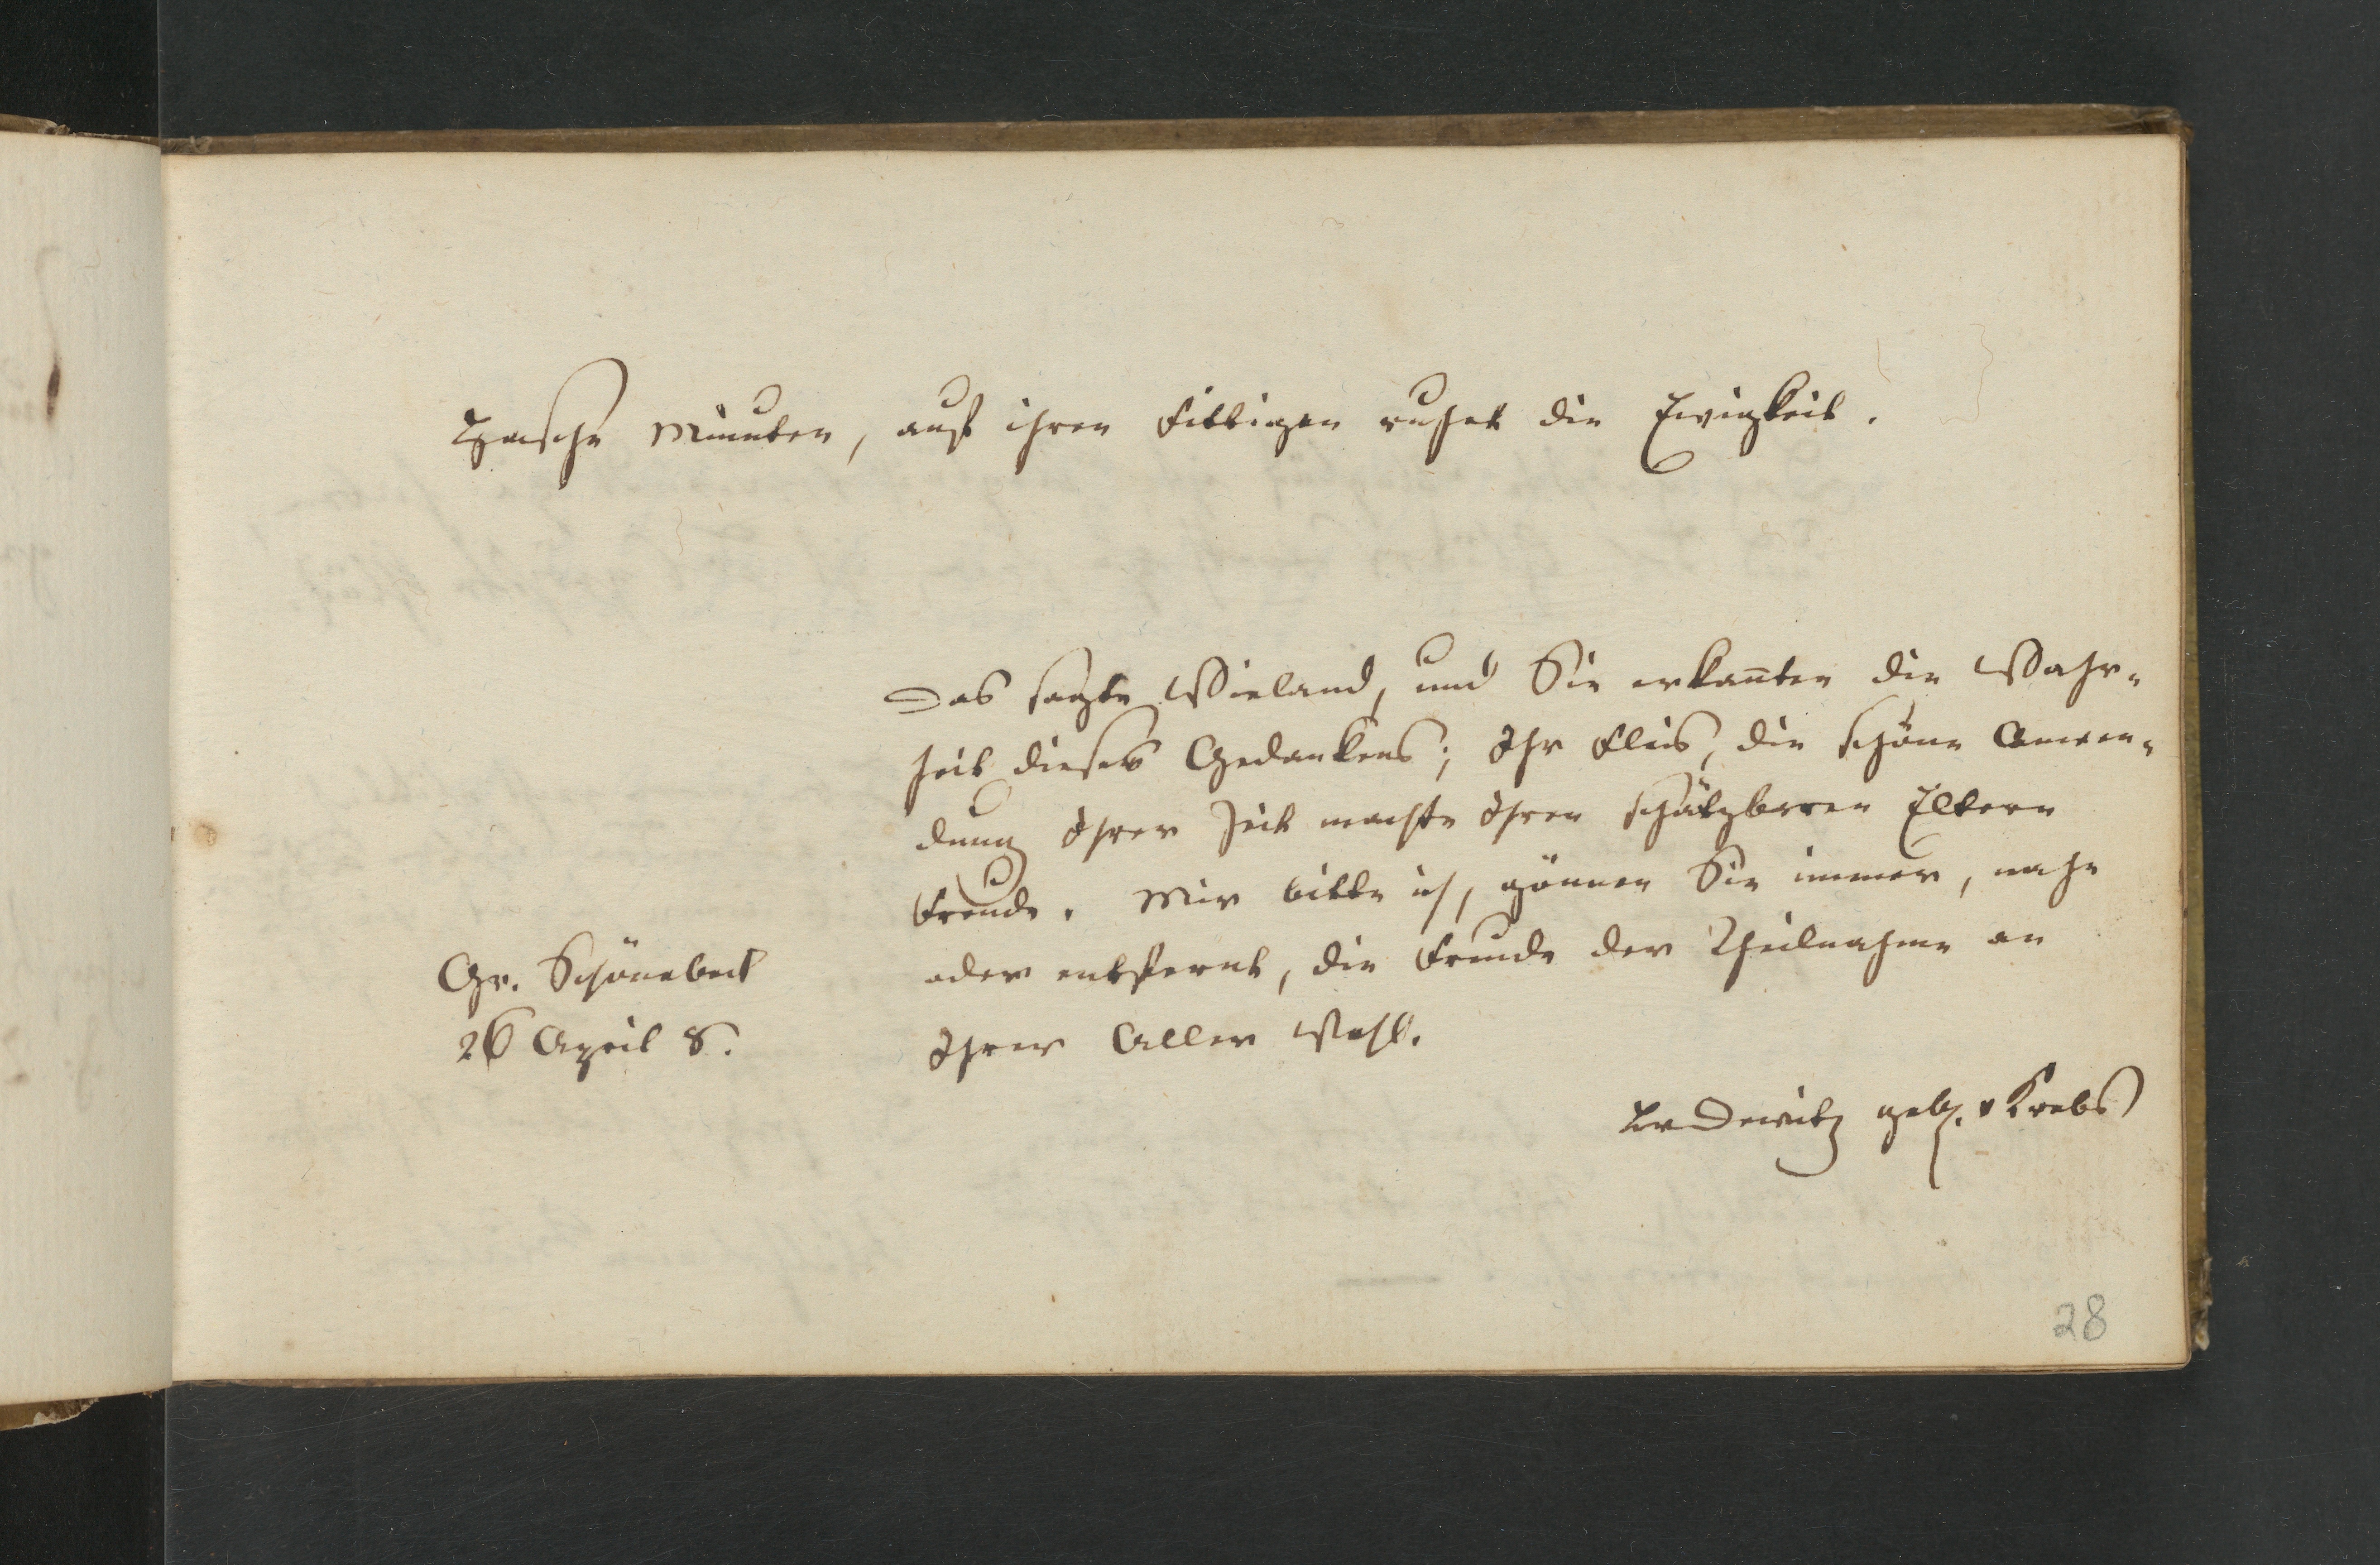 Hasche Minuten, auf ihren Fittigen ruhet die Ewigkeit.
Das sagte Wieland, und Sie erkan̄ten die Wahr-
heit dieses Gedankens; Ihr Fleis, die schöne Anwen-
dung Ihrer Zeit machte Ihren schätzbaren Eltern
Freude. Mir bitte ich, gönnen Sie immer, nahe
oder entfernt, die Freude der Theilnahme an
Ihrer Aller Wohl.
Gr. Schönebeck
26 April 8.
v Dewitz geb. v Krebs
28